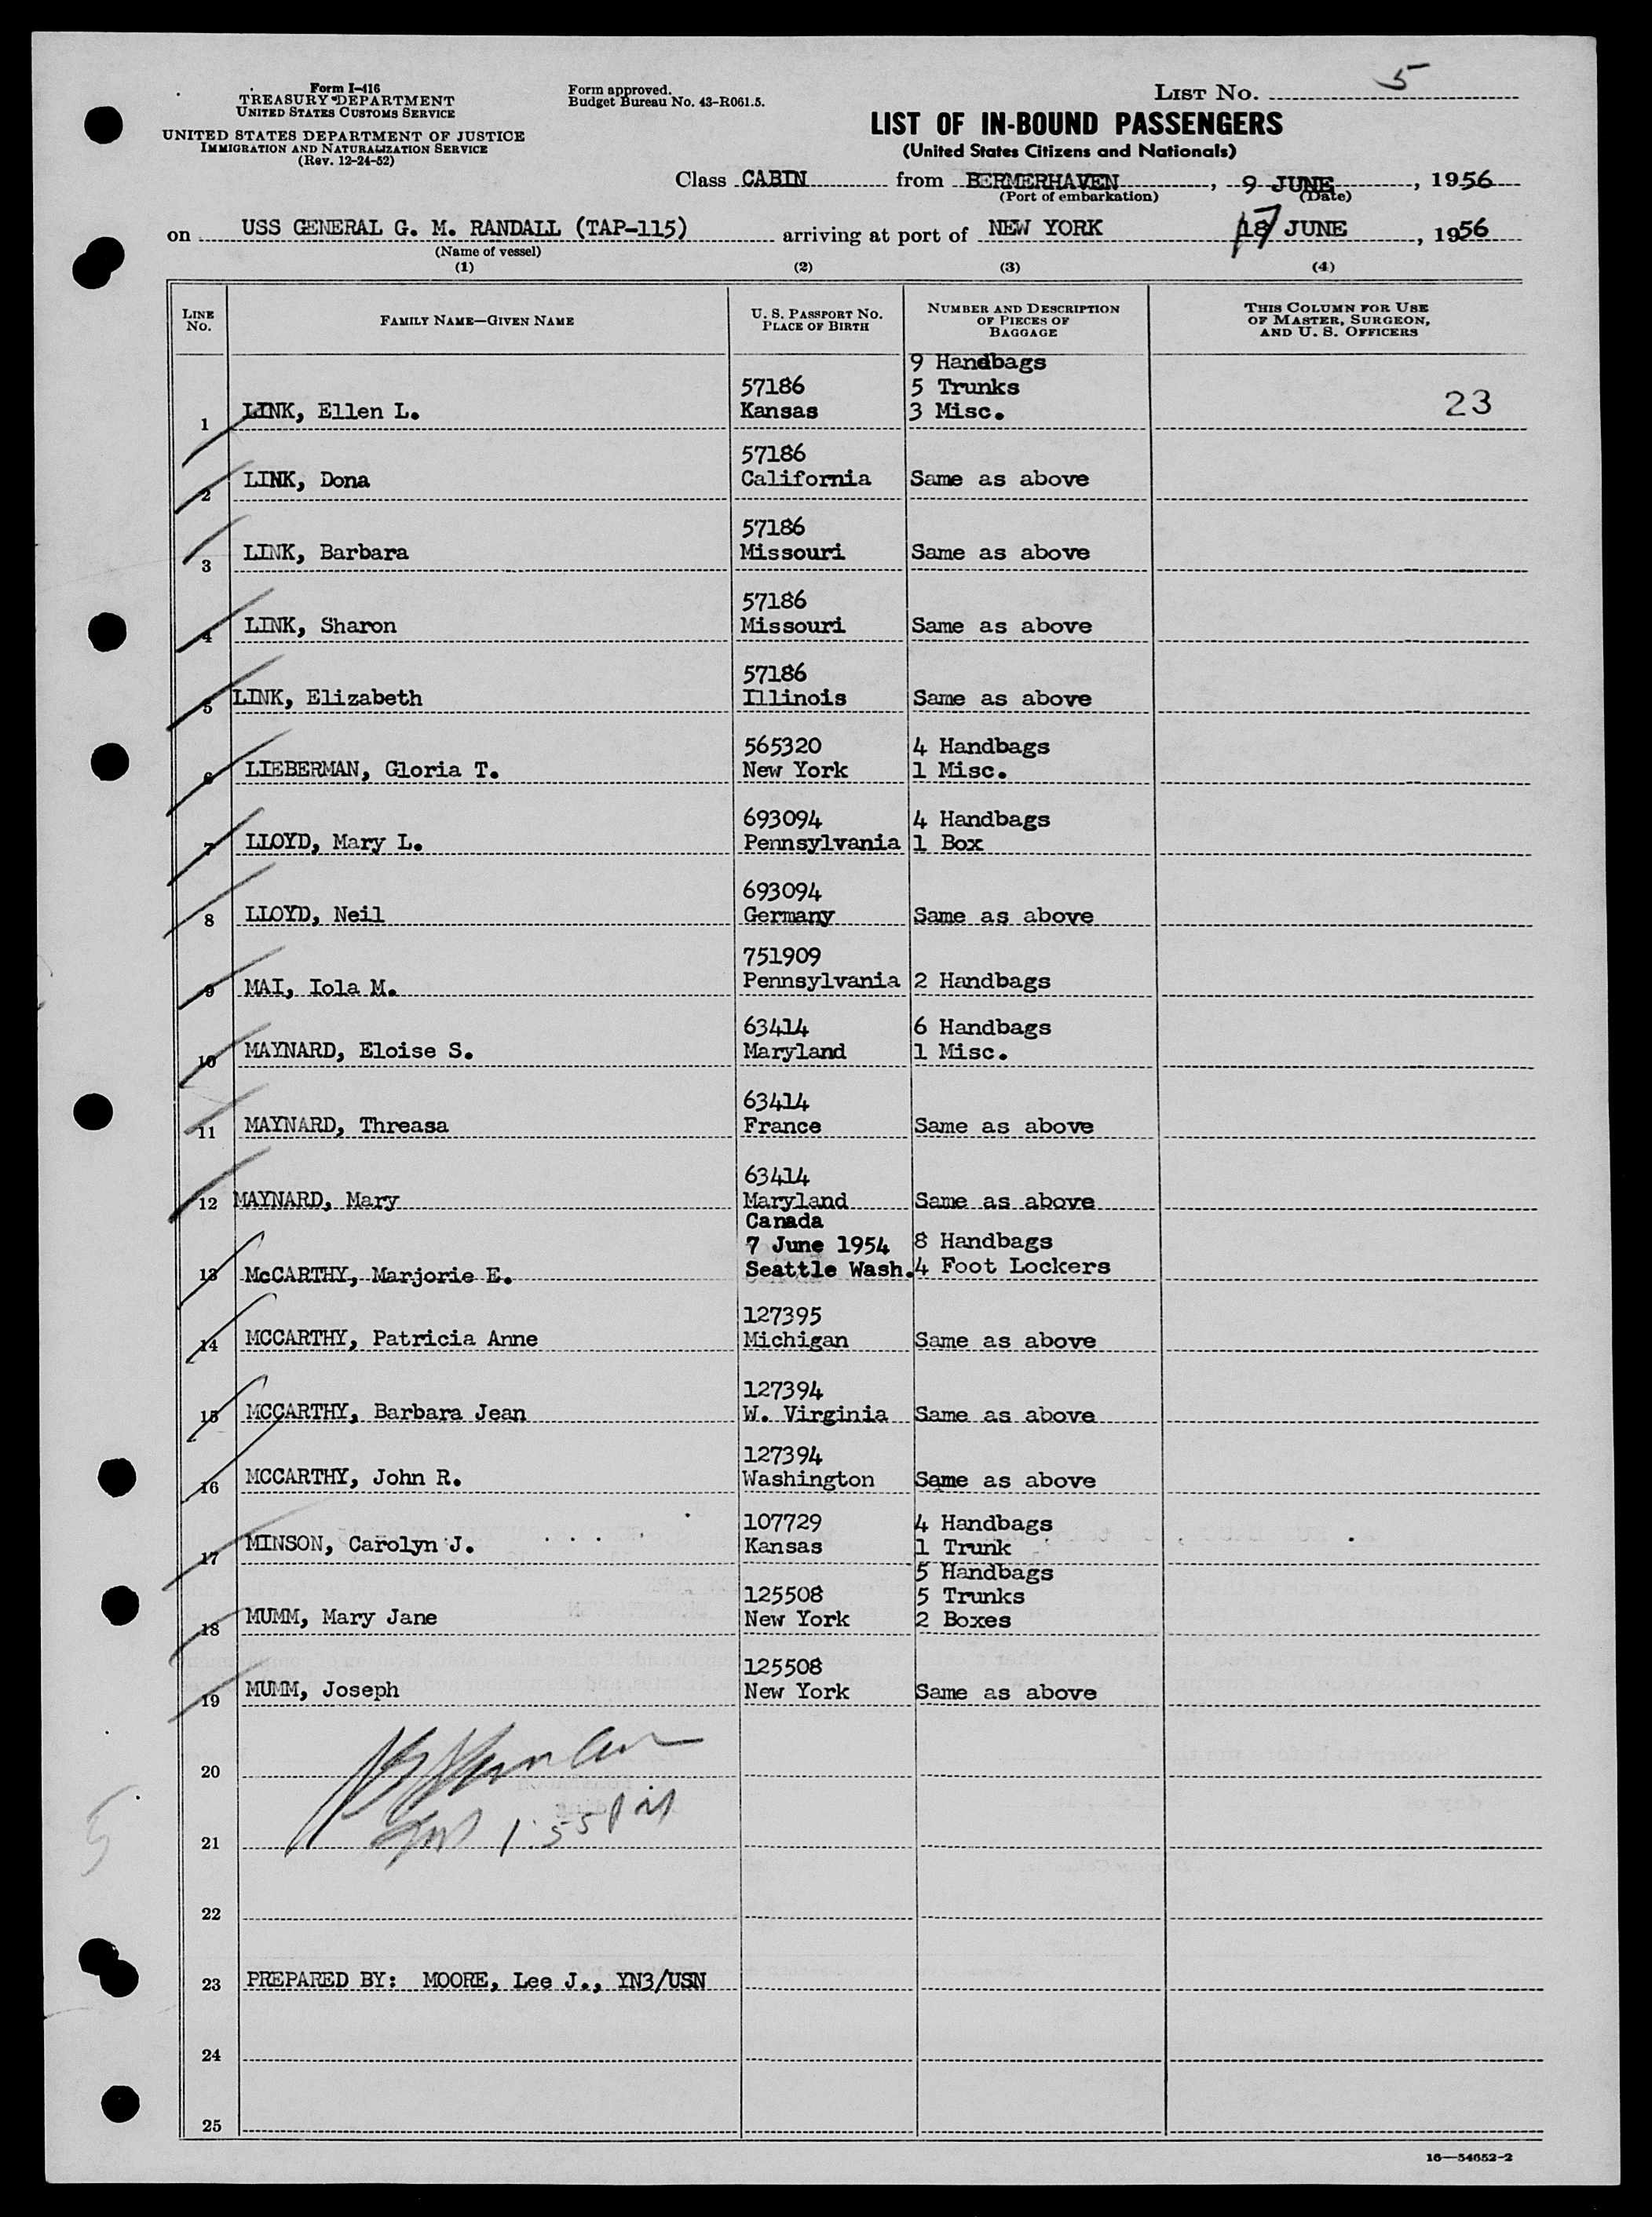 Form I-416
TREASURY DEPARTMENT
UNITED STATES CUSTOMS SERVICE
UNITED STATES DEPARTMENT OF JUSTICE
IMMIGRATION AND NATURALIZATION SERVICE
(Rev. 12-24-52)
Form approved.
Budget Bureau No. 43-R061.5.
LIST No. 5
LIST OF IN-BOUND PASSENGERS
(United States Citizens and Nationals)
Class CABIN from BERMERHAVEN, 9 JUNE, 1956
(Port of embarkation) (Date)
on USS GENERAL G. M. RANDALL (TAP-115) arriving at port of NEW YORK 17 JUNE, 1956
(Name of vessel)
(1) (2) (3) (4)
LINE No. FAMILY NAME—GIVEN NAME U. S. PASSPORT No. PLACE OF BIRTH NUMBER AND DESCRIPTION OF PIECES OF BAGGAGE THIS COLUMN FOR USE OF MASTER, SURGEON, AND U. S. OFFICERS
9 Handbags
57186 5 Trunks
1 LINK, Ellen L. Kansas 3 Misc. 23
57186
2 LINK, Dona California Same as above
57186
3 LINK, Barbara Missouri Same as above
57186
4 LINK, Sharon Missouri Same as above
57186
5 LINK, Elizabeth Illinois Same as above
565320 4 Handbags
6 LIEBERMAN, Gloria T. New York 1 Misc.
693094 4 Handbags
7 LLOYD, Mary L. Pennsylvania 1 Box
693094
8 LLOYD, Neil Germany Same as above
751909
9 MAI, Iola M. Pennsylvania 2 Handbags
63414 6 Handbags
10 MAYNARD, Eloise S. Maryland 1 Misc.
63414
11 MAYNARD, Threasa France Same as above
63414
12 MAYNARD, Mary Maryland Same as above
Canada
7 June 1954 8 Handbags
13 McCARTHY, Marjorie E. Seattle Wash. 4 Foot Lockers
127395
14 MCCARTHY, Patricia Anne Michigan Same as above
127394
15 MCCARTHY, Barbara Jean W. Virginia Same as above
127394
16 MCCARTHY, John R. Washington Same as above
107729 4 Handbags
17 MINSON, Carolyn J. Kansas 1 Trunk
5 Handbags
125508 5 Trunks
18 MUMM, Mary Jane New York 2 Boxes
125508
19 MUMM, Joseph New York Same as above
20
1:55 PM
21
22
23 PREPARED BY: MOORE, Lee J., YN3/USN
24
25
5
16—54652-2